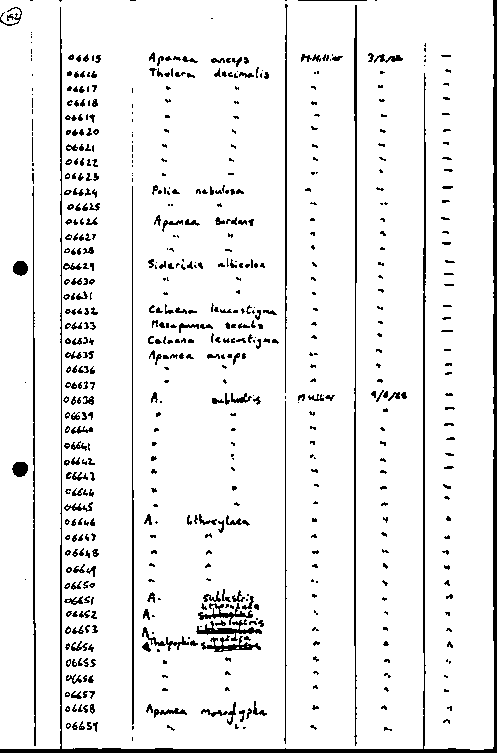 152
06615 Apamea anceps M Hillier 3/8/88 —
06616 Tholera decimalis " " —
06617 " " " " —
06618 " " " " —
06619 " " " " —
06620 " " " " —
06621 " " " " —
06622 " " " " —
06623 " " " " —
06624 Polia nebulosa " " —
06625 " " " " —
06626 Apamea sordens " " —
06627 " " " " —
06628 " " " " —
06629 Sideridis albicolon " " —
06630 " " " " —
06631 " " " " —
06632 Celaena leucostigma " " —
06633 Mesapamea secalis " " —
06634 Celaena leucostigma " " —
06635 Apamea anceps " " —
06636 " " " " —
06637 " " " " —
06638 A. sublustris M Hillier —
06639 " " " " —
06640 " " " " —
06641 " " " " —
06642 " " " " —
06643 " " " " —
06644 " " " " —
06645 " " " " —
06646 A. lithoxylaea " " "
06647 " " " " "
06648 " " " " "
06649 " " " " "
06650 " " " " "
06651 A. sublustris " " "
06652 A. lithoxylaea " " "
06653 A. sublustris " " "
06654 Thalpophila matura " " "
06655 " " " " "
06656 " " " " "
06657 " " " " "
06658 Apamea monoglypha " " "
06659 " " " " "